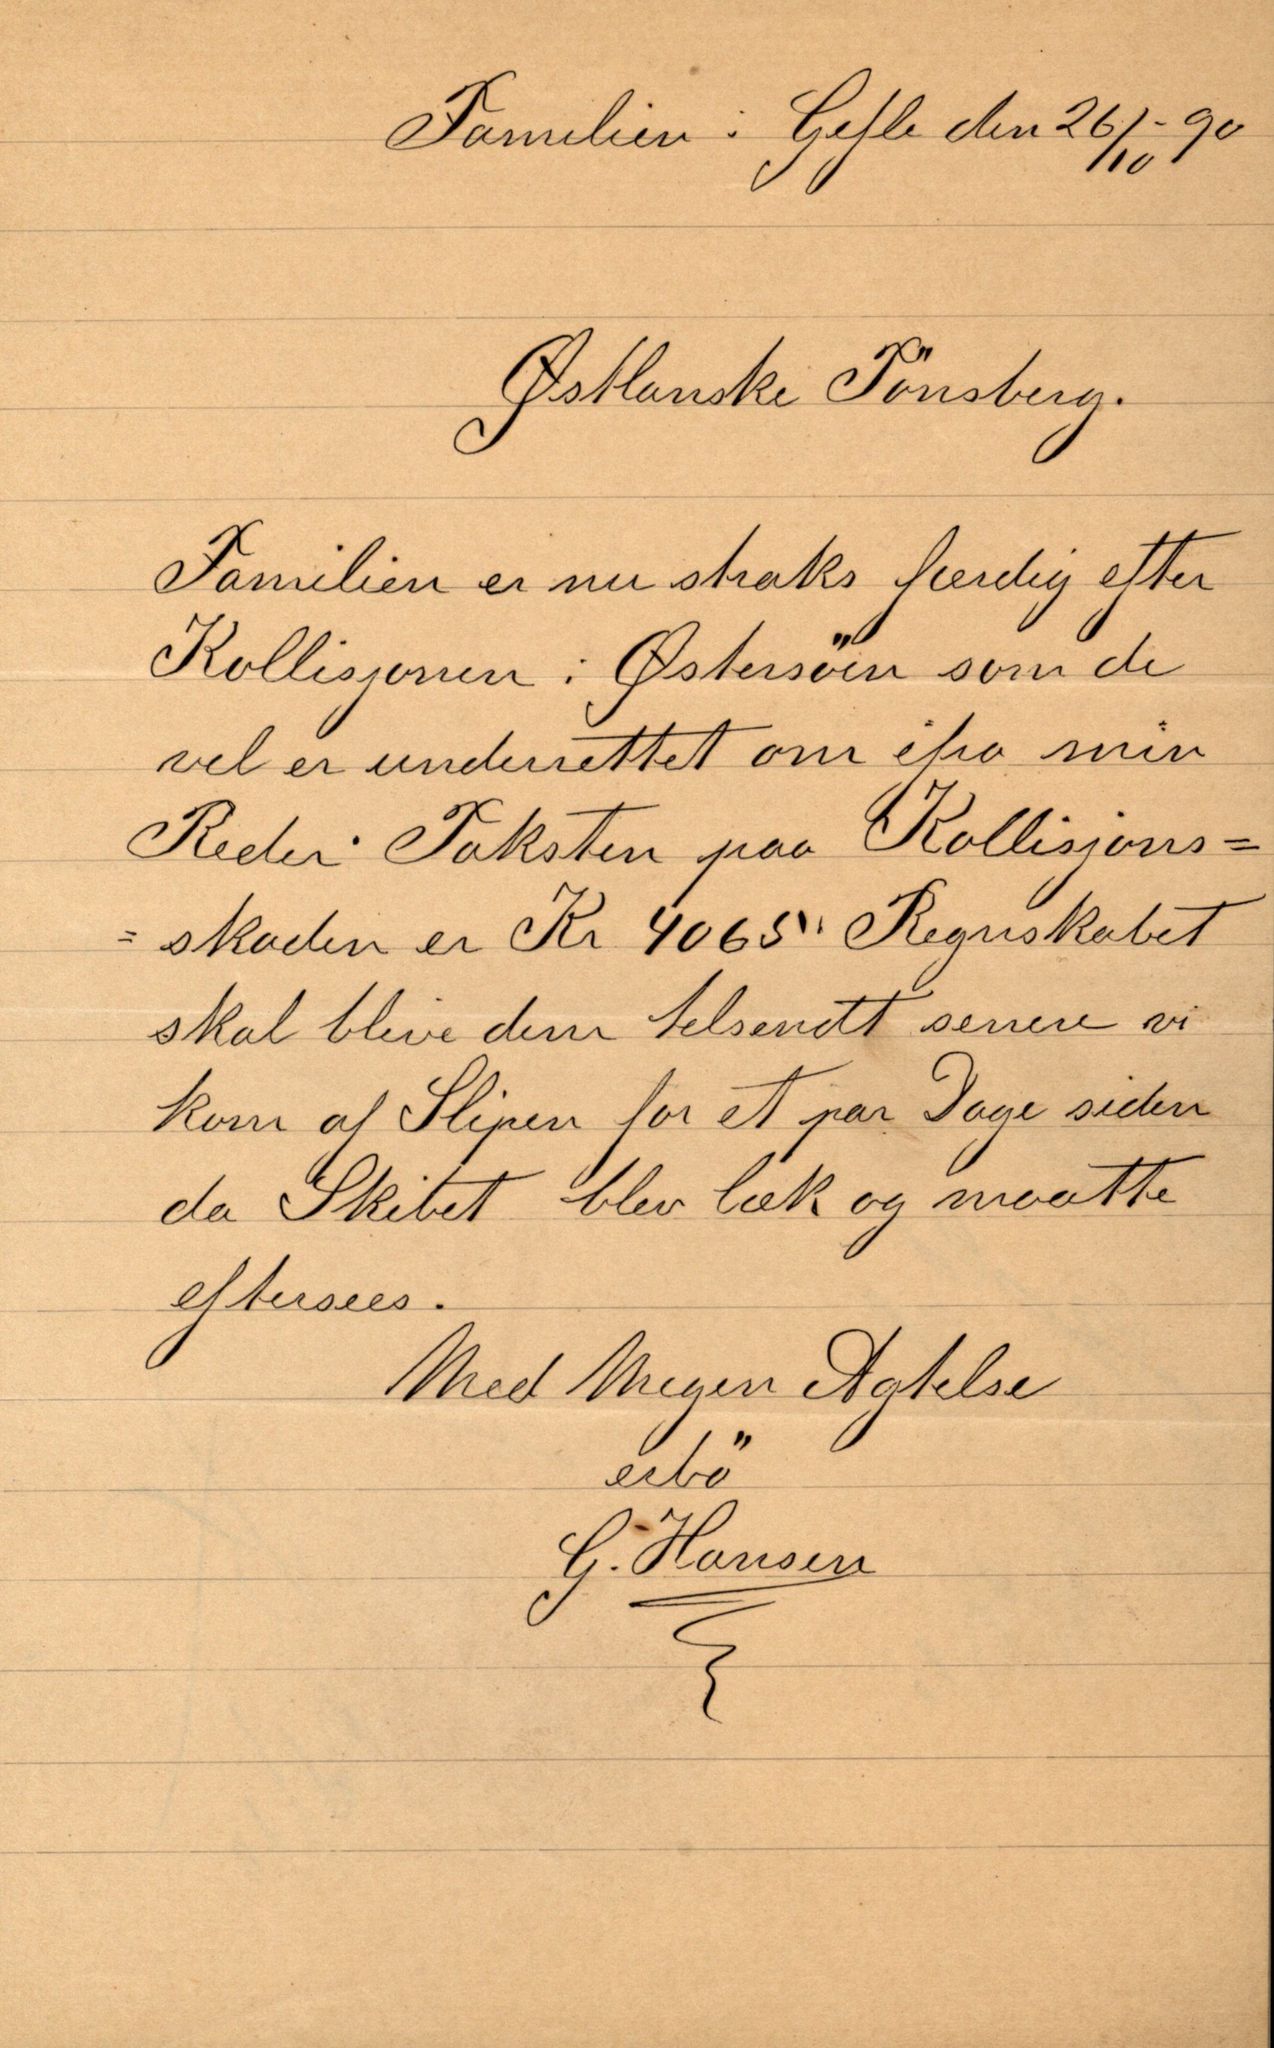 Familien i Gefle den 26/10-90
Østlanske Tönsberg.
Familien er nu straks færdig efter
Kollisjonen i Østersöen som de
vel er underrettet om ifra min
Reder. Taksten paa Kollisjons=
=skaden er Kr 4065. Regnskabet
skal blive dem telsendt senere vi
kom af Slipen for et par Dage siden
da Skibet blev læk og maatte
eftersees.
Med Megen Agtelse
erbö
G. Hansen